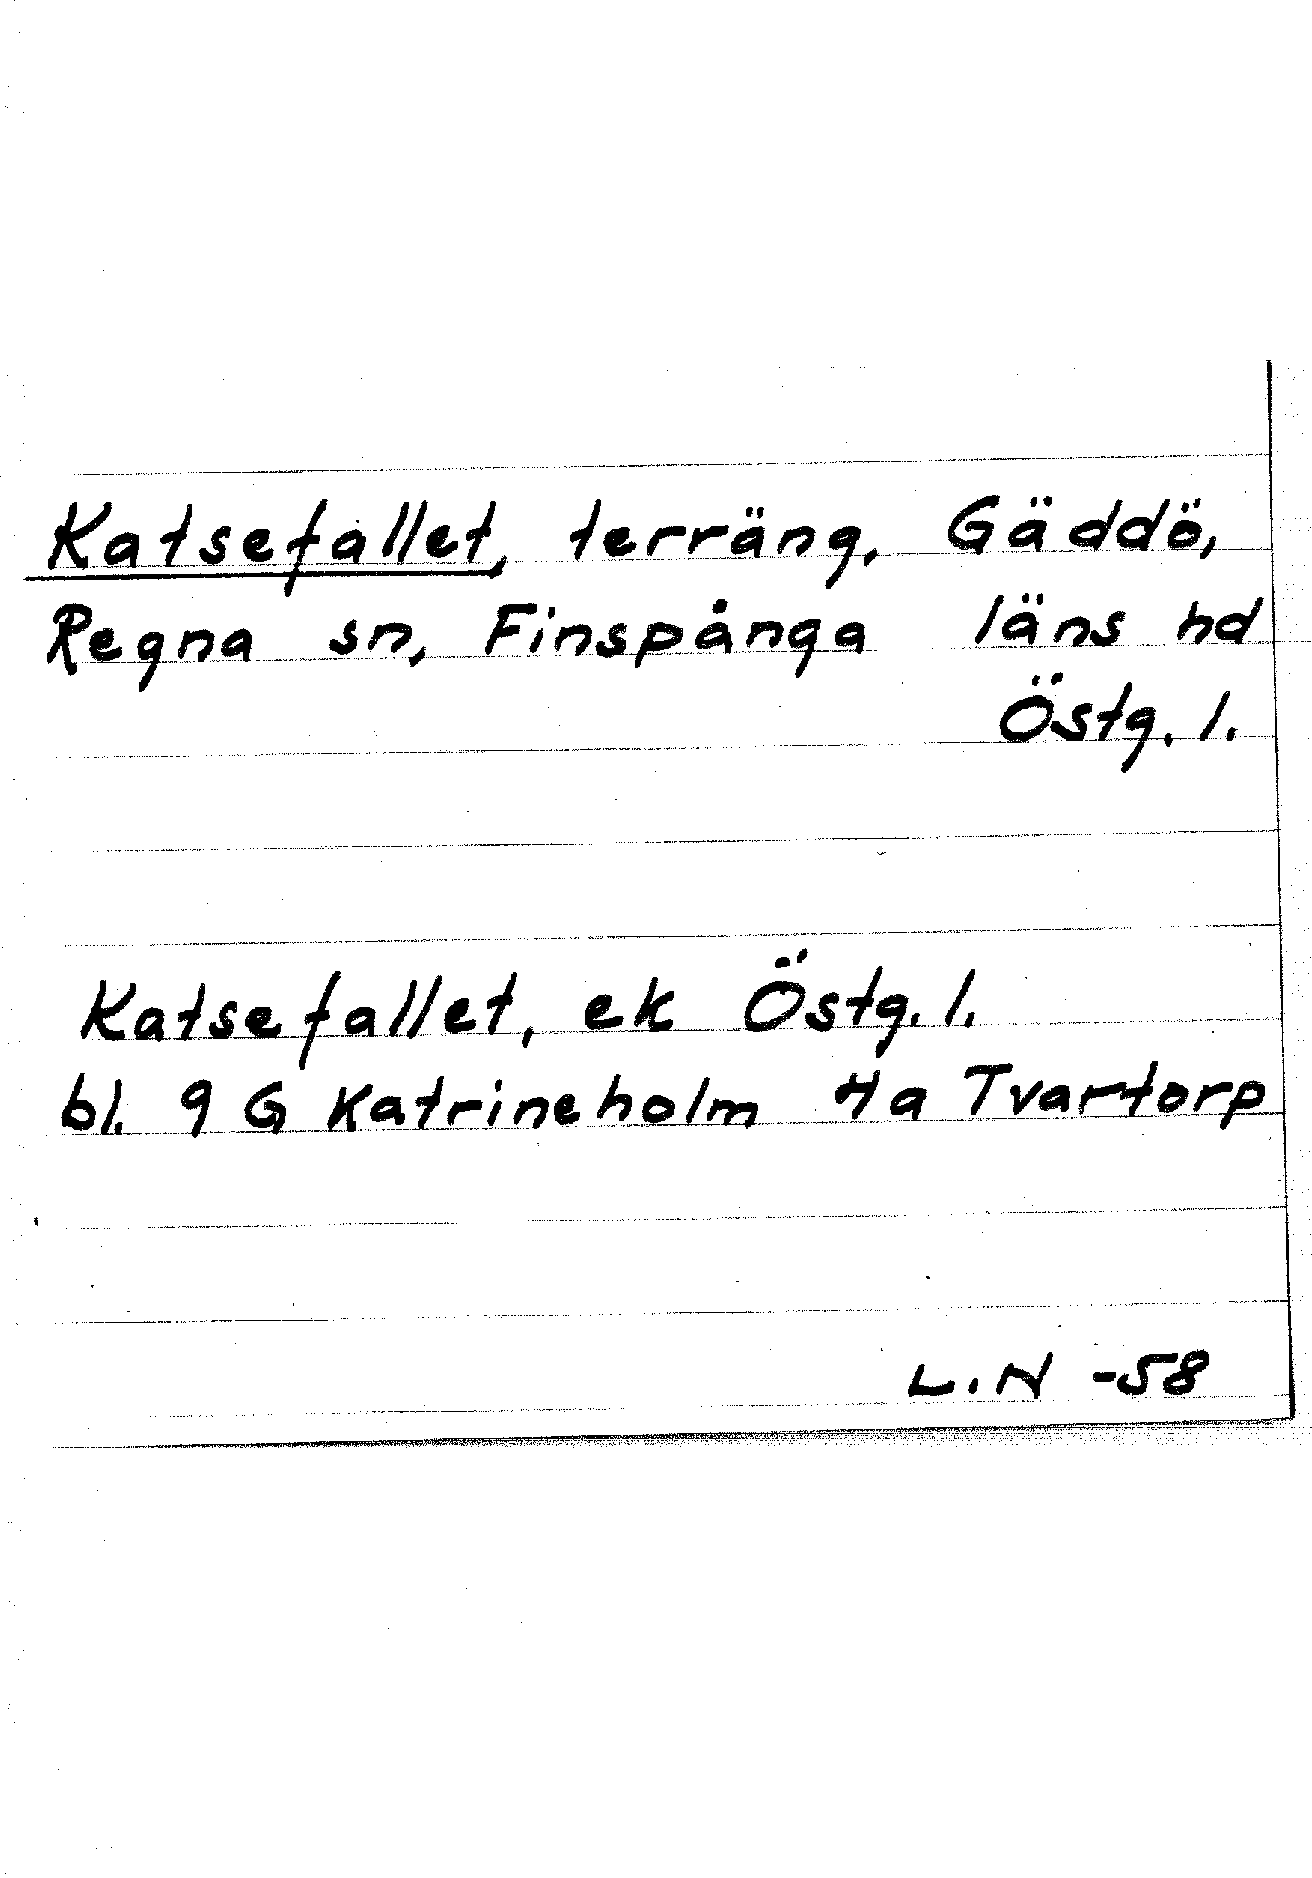 Katsefallet, terräng, Gäddö,
Regna sn, Finspånga läns hd
Östg. l.
Katsefallet, ek Östg. l.
bl. 9 G Katrineholm 4a Tvartorp
L.N -58